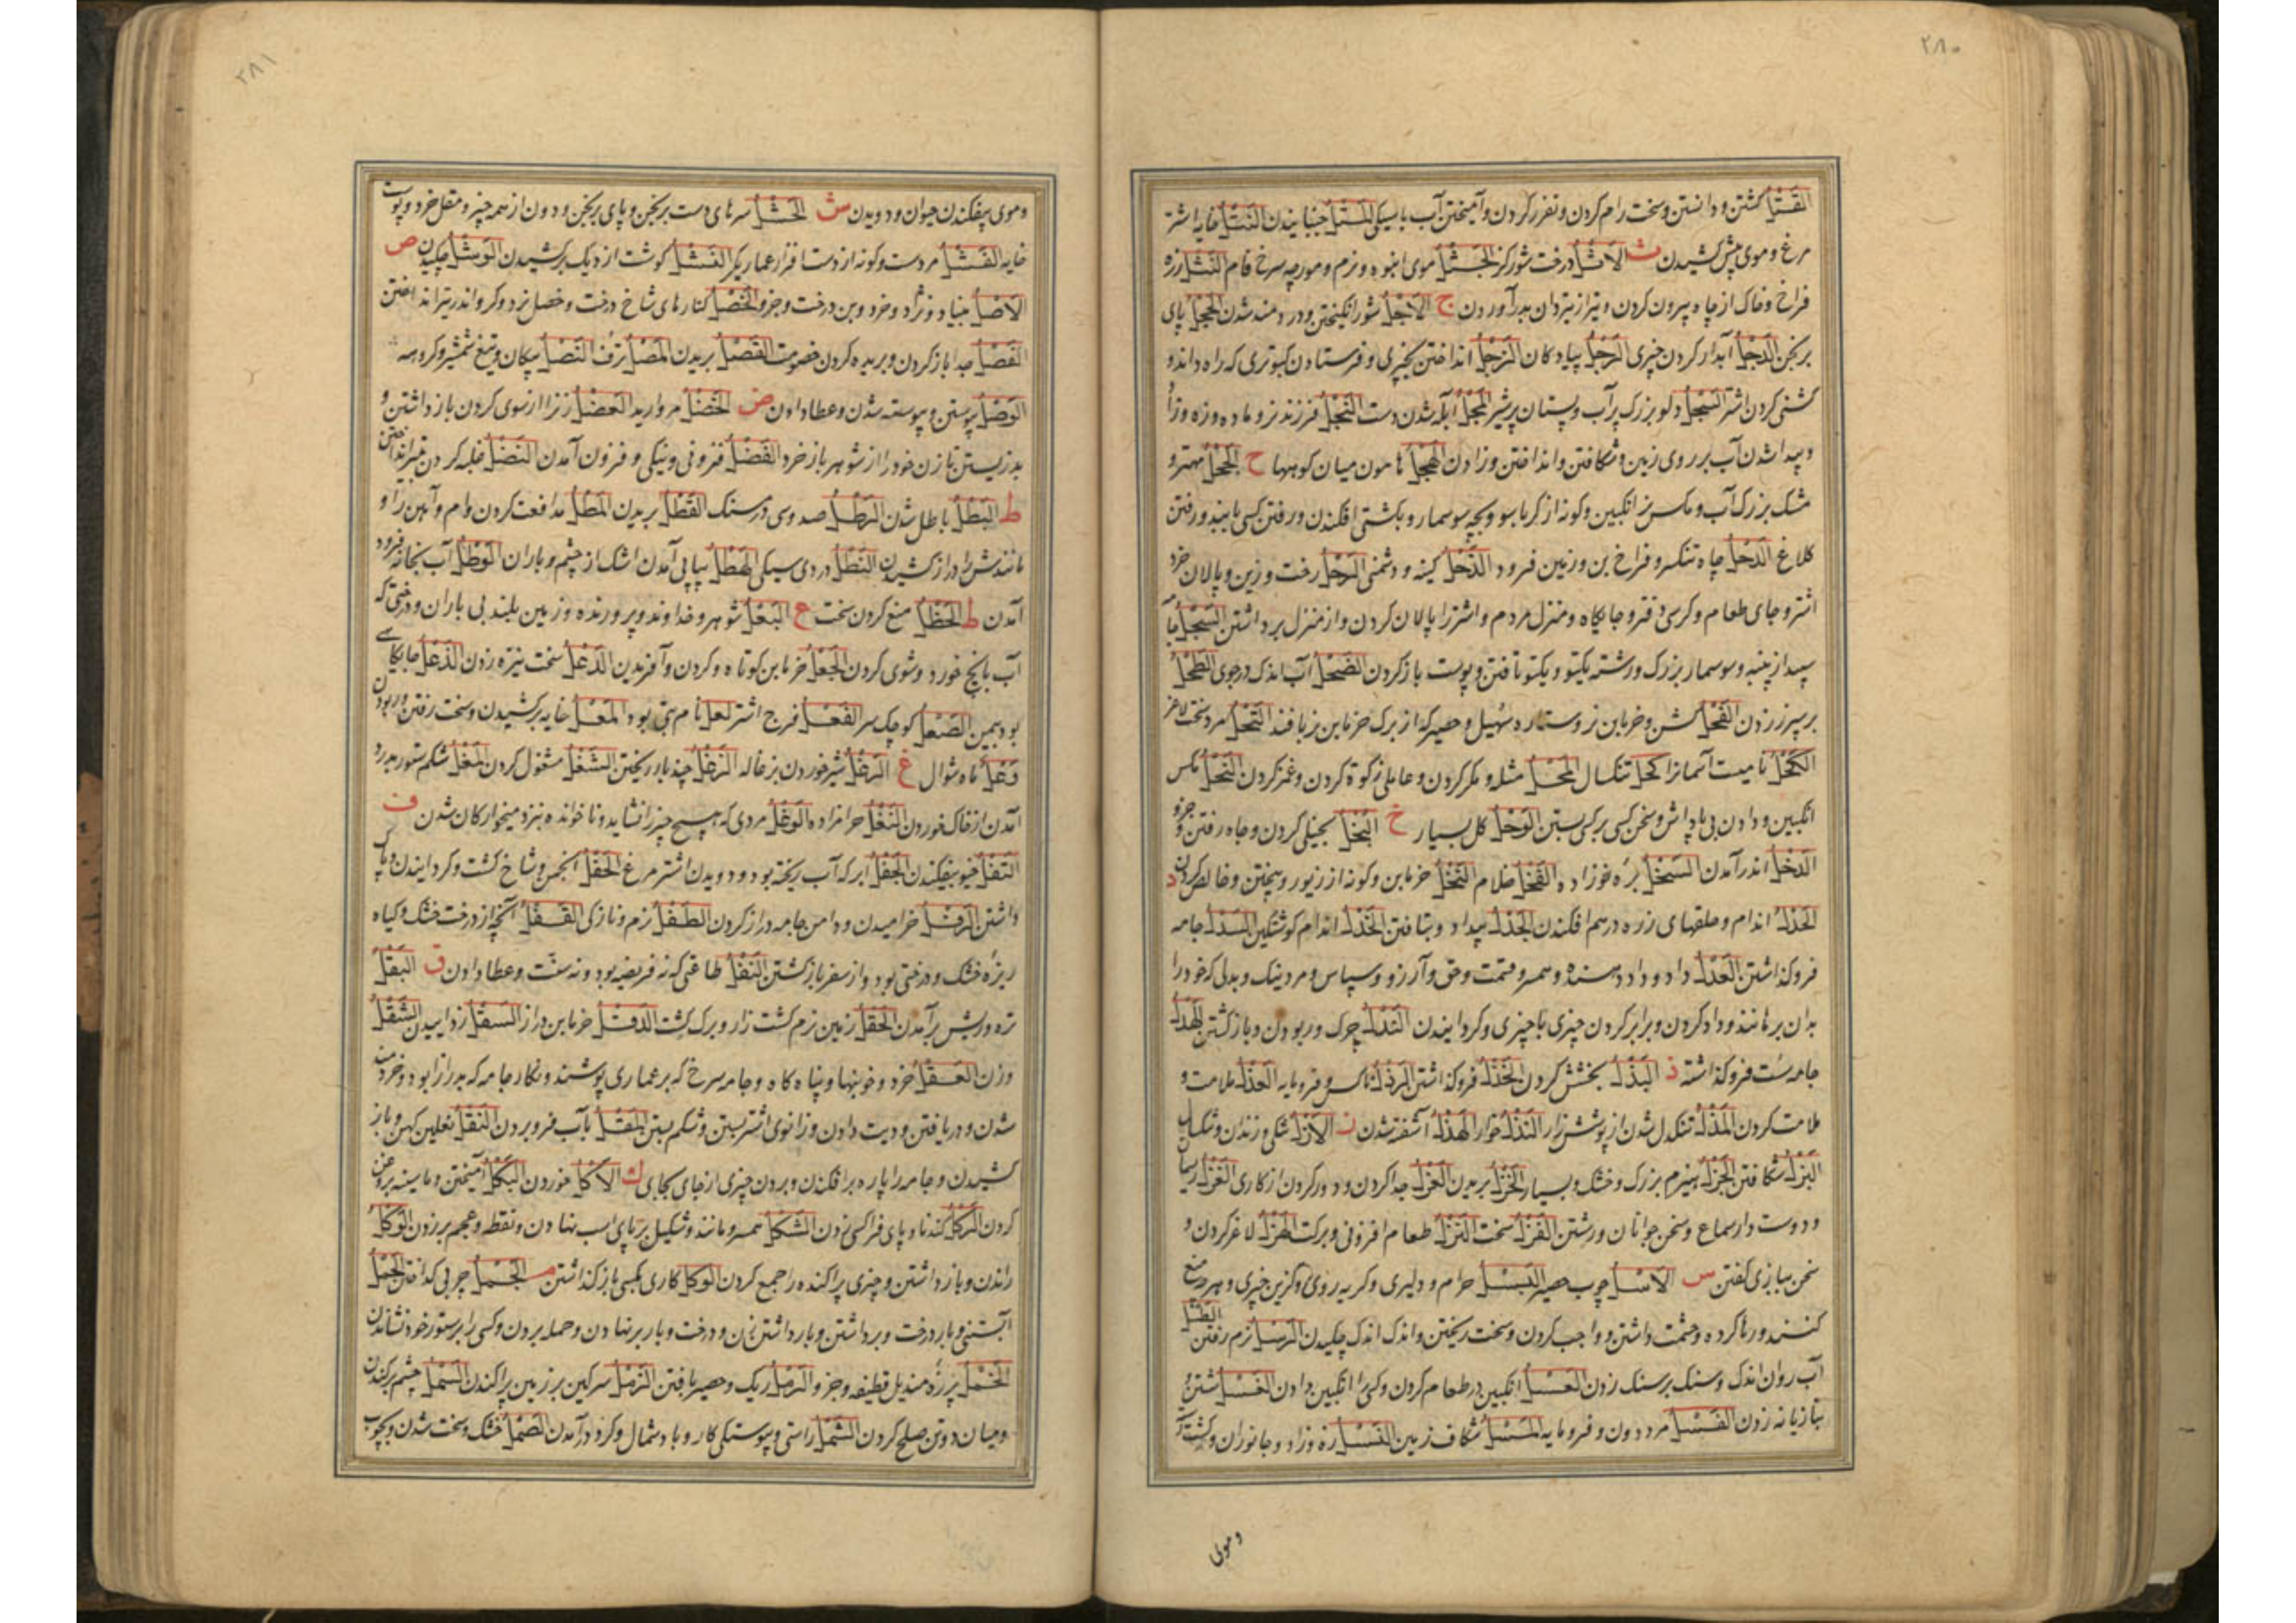 ٢٨٠
القَتْل کشتن و دانستن و سخت رام کردن و نفرز کردن و آمیختن آب با سیکی المَتْل جنبانیدن النَتْل خایه اشتر
مرغ و موی پیش کشیدن ث الاَثْل درخت شورکز الجَثْل موی انبوه و نرم و مورچه سرخ فام النَثْل زره
فراخ و خاک از چاه بیرون کردن و تیر از تیردان بدر آوردن ج الاَجْل شور انکیختن و دردمند شدن الحِجْل پای
برنجن الدَجْل آبدار کردن چیزی الرَجْل پیادکان الزَجْل انداختن بچیزی و فرستادن کبوتری که راه داند و
کشنی کردن اشتر السَجْل دلو بزرک پر آب و پستان پر شیر المَجْل آبله شدن دست النَجْل فرزند نر و ماده و زه و زاد
و پیدا شدن آب بر روی زمین و شکافتن و انداختن و زادن الهَجْل هامون میان کوهها ح الجَحْل مهتر و
مشک بزرک آب و مکس نر انکبین و کونه از کرباسو و بچه سوسمار و بکشتی افکندن و رفتن کسی مانند و رفتن
کلاغ الدَحْل چاه تنکسر و فراخ بن و زمین فرود الذَحْل کینه و دشمنی الرَحْل رخت و زین و پالان خرد
اشتر و جای طعام و کرسی دفتر و جایکاه و منزل مردم و اشتر را پالان کردن و از منزل برداشتن السَحْل جامه
سپید از پنبه و سوسمار بزرک و رشته یکتو و یکتو تافتن و پوست باز کردن الضَحْل آب اندک در جوی الطَحْل
بر سپرز زدن الفَحْل کشن و خرمابن نر و ستاره سهیل و حصیر که از برک خرمابن نر بافند القَحْل مرد سخت لاغر
الکَحْل نامیست آسمانرا کَحْل تنکسال المَحْل مثله و مکر کردن و عاملی زکوة کردن و غمز کردن النَحْل مکس
انکبین و دادن بی پاداش و سخن کسی بر کسی بستن الوَحْل کل بسیار خ البُخْل بخیلی کردن و جاه رفتن و جزو
الدَخْل اندر آمدن السَخْل بره نوزاده النَخْل خرمابن و کونه از زیور و بیختن و خالص کردن د
الجَدْل اندام و حلقهای زره درهم افکندن الحَدْل بیداد و بتافتن الخَدْل اندام کوشتکین السَدْل جامه
فرو کذاشتن العَدْل داد و داد دهنده و همسر و قیمت و حق و آرزو و سپاس و مرد نیک و بدلی که خود را
بدان برهانند و داد کردن و برابر کردن چیزی با چیزی و کردانیدن النَدْل چرک و ربودن و باز کشتن الهَدْل
جامه سست فرو کذاشته ذ البَذْل بخشش کردن الخَذْل فرو کذاشتن الرَذْل ناکس و فرومایه العَذْل ملامت و
ملامت کردن المَذْل تنکدل شدن از پوشش راز النَذْل خوار الهَذْل آشفته شدن ز الاَزْل تنکی و زندان و تنکسال
البَزْل شکافتن الجَزْل هیزم بزرک و خشک و بسیار الخَزْل بریدن العَزْل جدا کردن و دور کردن از کاری الغَزْل ریسمان
و دوست دار سماع و سخن جوانان و رشتن القَزْل سخت النُزْل طعام افزونی و برکت الهَزْل لاغر کردن و
سخن ببازی کفتن س الاَسَل چوب حصیر البَسْل حرام و دلیری و کریه روی و کزین چیزی و هر دو منع
کننده و رها کرده و حشمت داشتن و واجب کردن و سخت ریختن و اندک اندک چکیدن الرَسْل نرم رفتن الطَسْل
آب روان اندک و سنک بر سنک زدن العَسْل انکبین در طعام کردن و کسی را انکبین دادن الغَسْل شستن و
بتازیانه زدن الفَسْل مرد دون و فرومایه المَسْل شکاف زمین النَسْل زه و زاد و جانوران و کشت
و موی
٢٨١
و موی بیفکندن حیوان و دویدن ش الخَشْل سرهای دست برنجن و پای برنجن و دون از همه چیز و مقل خرد و پوست
خایه الفَشْل مرد سست و کونه از دست افزار عماری کر النَشْل کوشت از دیک برکشیدن الوَشْل چکیدن ص
الاَصْل بنیاد و نژاد و خرد و بن درخت و جزو الخَصْل کنارهای شاخ درخت و خصل نرد و کرو اندر تیر انداختن
الفَصْل جدا باز کردن و بریده کردن خصومت القَصْل بریدن المَصْل ترف النَصْل پیکان و تیغ شمشیر و کروهه
الوَصْل پیوستن و پیوسته شدن و عطا دادن ض الخَضْل مروارید العَضْل زنرا از شوی کردن باز داشتن و
بد زیستن تا زن خود را از شوهر باز خرد الفَضْل فزونی و نیکی و فزون آمدن النَضْل غلبه کردن بتیر انداختن
ط البُطْل باطل شدن الرَطْل صد و سی درمسنک القَطْل بریدن المَطْل مدافعت کردن وام و آهن را و
مانندش را دراز کشیدن النَطْل دردی سیکی الهَطْل پیاپی آمدن اشک از چشم و باران الوَطْل آب بخانه فرود
آمدن ظ الحَظْل منع کردن سخت ع البَعْل شوهر و خداوند و پرورنده و زمین بلند بی باران و درختی که
آب بابیخ خورد و شوی کردن الجَعْل خرمابن کوتاه و کردن و آفریدن الدَعْل سخت نیزه زدن الذَعْل جایکاهی
بود بیمن الصَعْل کوچک سر القَعْل فرج اشتر لَعْل نام بتی بود المَعْل خایه برکشیدن و سخت رفتن و ربودن
وَعْل ماه شوال غ الرَغْل شیر خوردن بزغاله الزَغْل چند بار ریختن الشَغْل مشغول کردن المَغْل شکم ستور بدرد
آمدن از خاک خوردن النَغْل حرامزاده الوَغْل مردی که هیچ چیز را نشاید و ناخوانده بنزد میخوارکان شدن ف
التَفْل خیو بیفکندن الجَفْل ابر که آب ریخته بود و دویدن اشتر مرغ الحَفْل انجمن و شاخ کشت و کرد آیندن و پاک
داشتن الرَفْل خرامیدن و دامن جامه دراز کردن الطَفْل نرم و نازکی القَفْل آنچه از درخت خشک و کیاه
ریزه خشک و درختی بود و از سفر باز کشتن النَفْل طاعتی که نه فریضه بود و نه سنت و عطا دادن ق البَقْل
تره و ریش برآمدن الحَقْل زمین نرم کشت زار و برک کشت الدَقْل خرمابن دراز السَقْل زداییدن الشَقْل
وزن العَقْل خرد و خونبها و پناه کاه و جامه سرخ که بر عماری پوشند و نکار جامه که بدرازا بود و خردمند
شدن و دریافتن و دیت دادن و زانوی اشتر بستن و شکم بستن المَقْل بآب فرو بردن النَقْل نعلین کهن و باز
کشیدن و جامه را پاره برافکندن و بردن چیزی از جای بجای ک الاَکْل خوردن البَکْل آمیختن و ماسینه بروغن
کردن الرَکْل کندنا و پای فرا کسی زدن الشَکْل همسر و مانند و شکیل بر پای اسب نهادن و نقطه و عجم بر زدن الوَکْل
راندن و باز داشتن و چیزی پراکنده را جمع کردن الوَکْل کاری بکسی باز کذاشتن م الجَمْل چربی کداختن الحَمْل
آبستنی و بار درخت و برداشتن و بار داشتن زن و درخت و بار بر نهادن و حمله بردن و کسی را بر ستور خود نشاندن
الخَمْل پرزه مندیل قطیفه و جزو الرَمْل ریک و حصیر بافتن الزَمْل سرکین بر زمین پراکندن السَمْل چشم برکندن
و میان دو تن صلح کردن الشَمْل راستی و پیوستکی کار و باد شمال و کرد درآمدن الصَمْل خشک و سخت شدن و بچوب